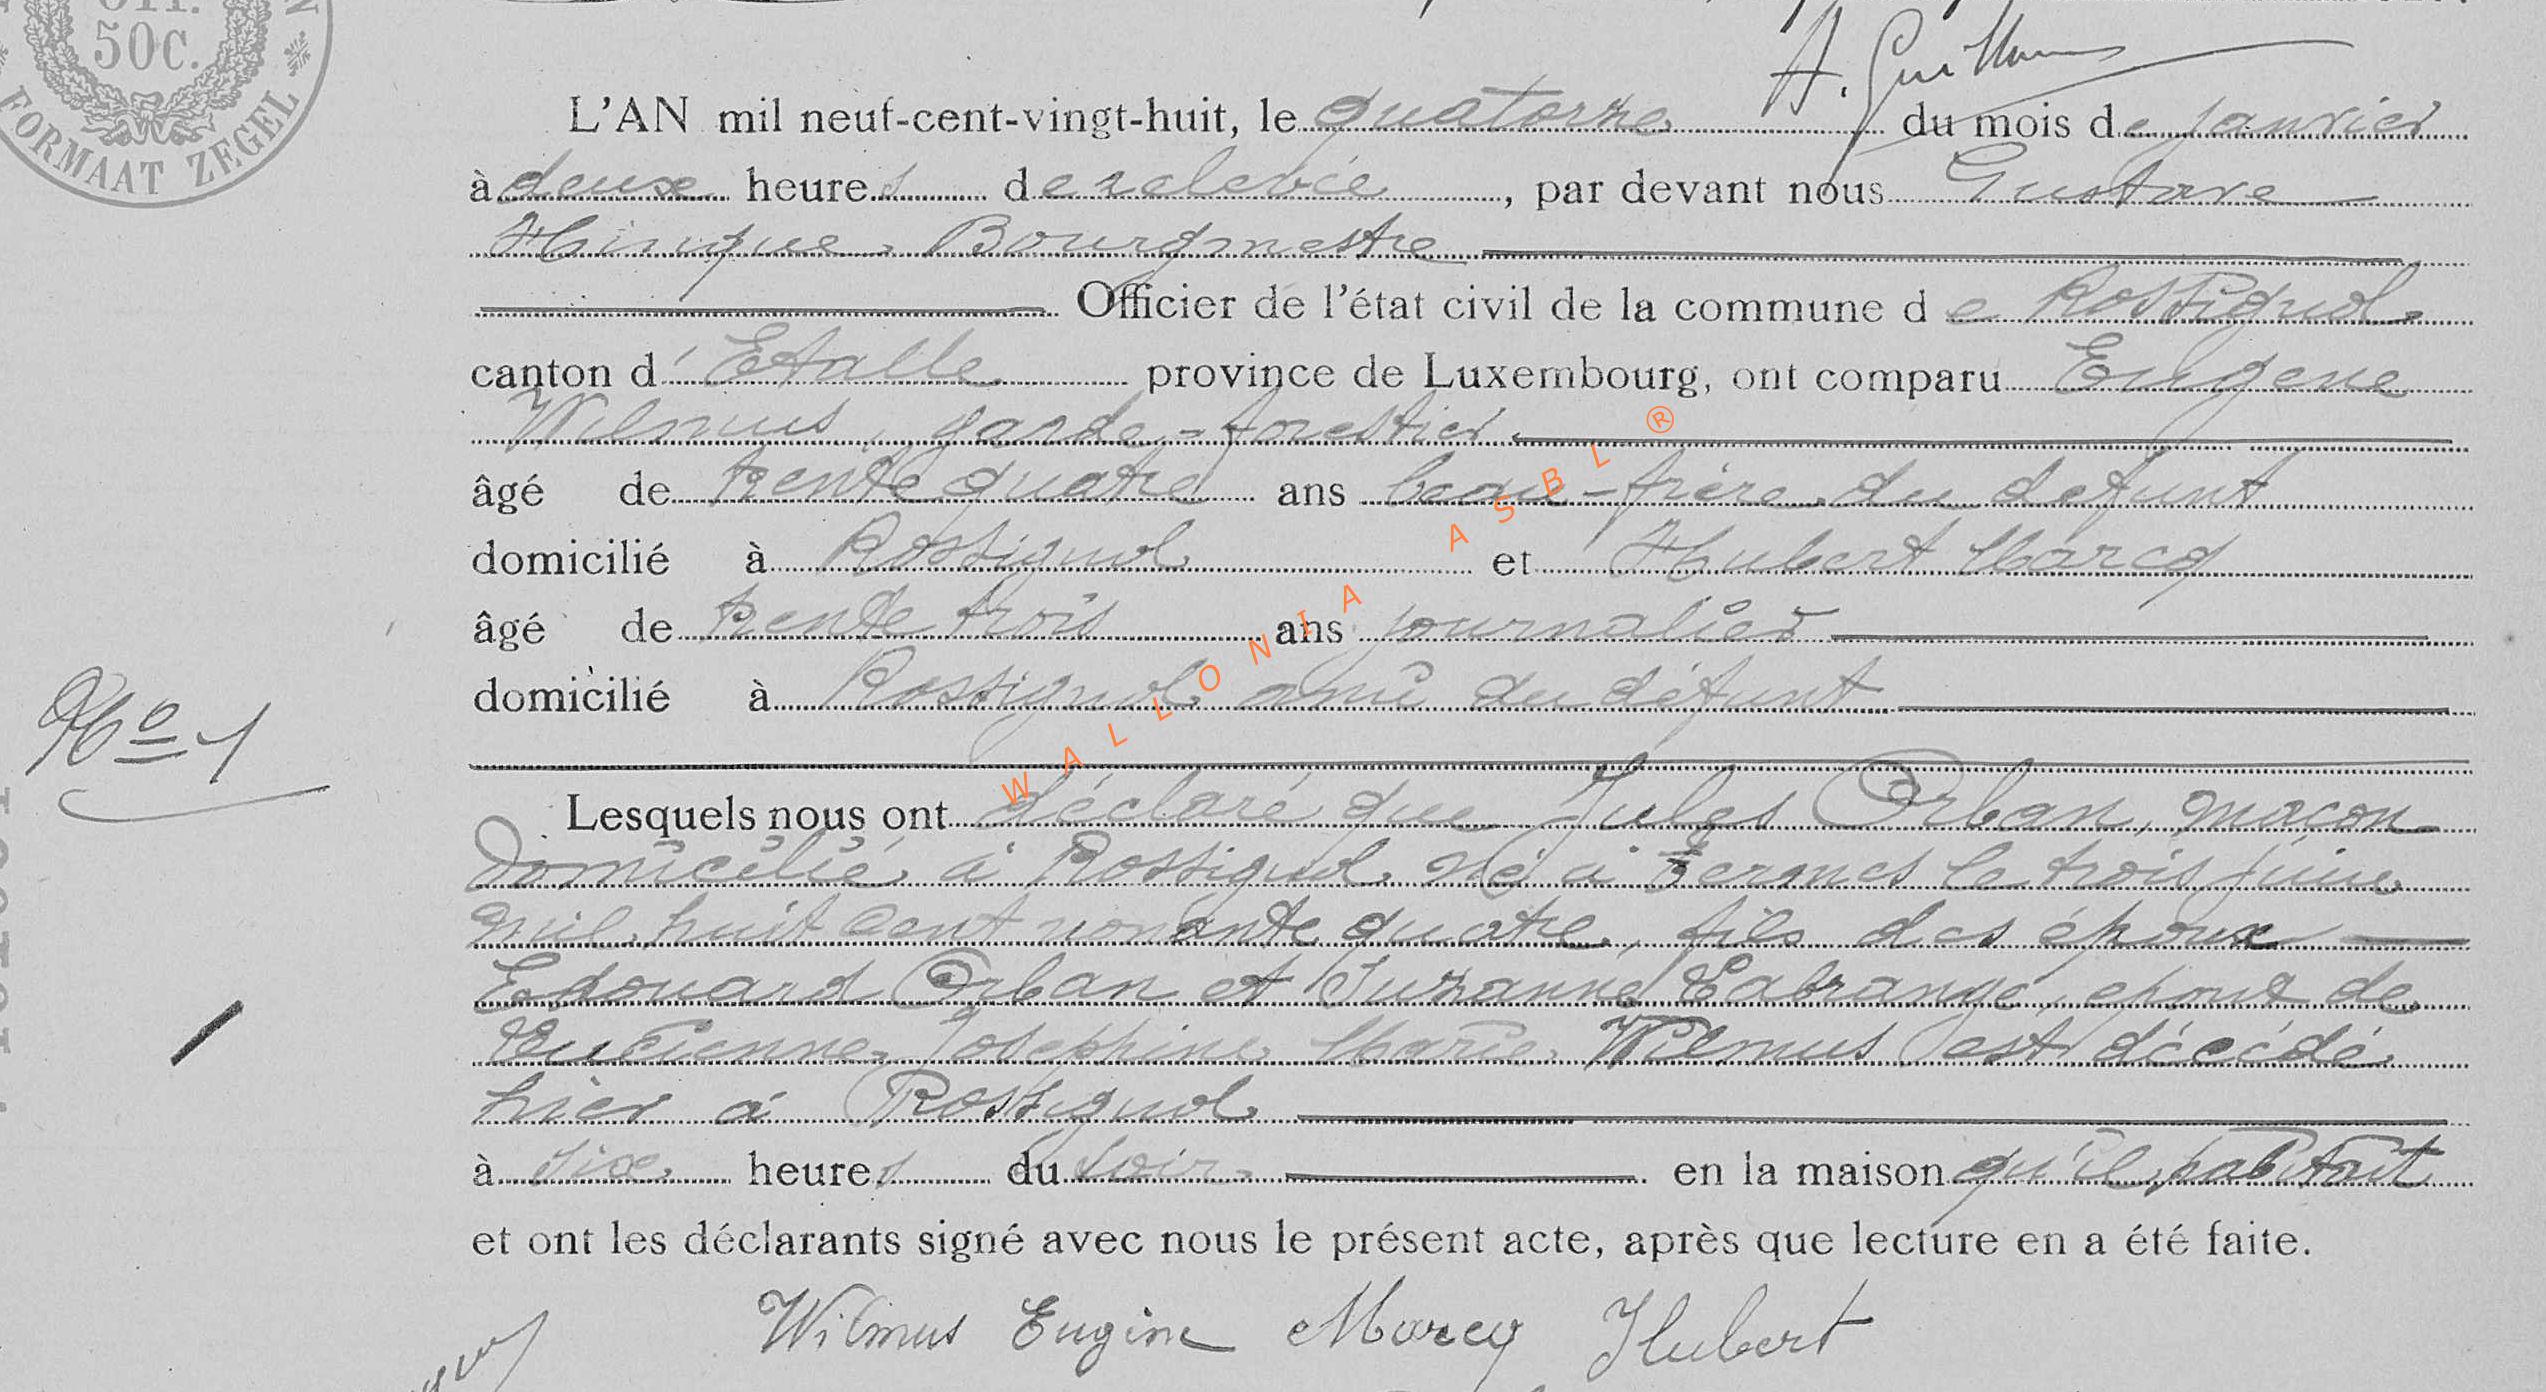 50C.
FORMAAT ZEGEL
A. Guillaume
L'AN mil neuf-cent-vingt-huit, le quatorze du mois de janvier
à deux heures de relevée, par devant nous Gustave
Hinque, Bourgmestre
Officier de l'état civil de la commune de Rossignol
canton d'Etalle province de Luxembourg, ont comparu Eugene
Wilmus, garde-forestier
âgé de trente quatre ans beau-frère du defunt
domicilié à Rossignol et Hubert Marcq
âgé de trente trois ans journalier
domicilié à Rossignol ami du défunt
No 1
Lesquels nous ont déclaré que Jules Orban, maçon
domicilié à Rossignol né à Termes le trois juin
mil huit cent nonante quatre, fils des époux
Edouard Orban et Suzanne Labrange, epoux de
Lucienne, Josephine Marie Wilmus est décédé
hier à Rossignol
à six heures du soir en la maison qu'il habitait
et ont les déclarants signé avec nous le présent acte, après que lecture en a été faite.
Wilmus Eugène Marcq Hubert
WALLONIA ASBL ®